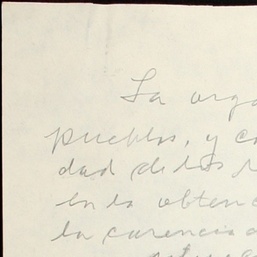 La orga
pueblos, y co
dad de los
en la obtenc
la carencia